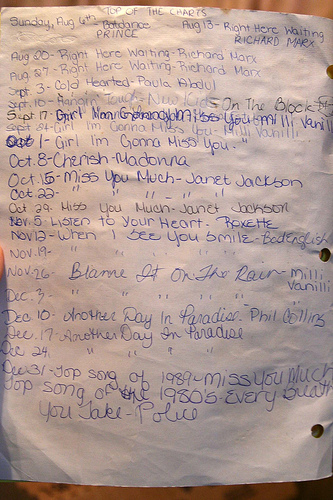 TOP OF THE CHARTS
Sunday, Aug 6th - Batdance PRINCE
Aug 13 - Right Here Waiting RICHARD MARX
Aug 20 - Right Here Waiting - Richard Marx
Aug 27 - Right Here Waiting - Richard Marx
Sept. 3 - Cold Hearted - Paula Abdul
Sept. 10 - Hangin' Tough - New Kids On The Block
Sept 17 - Girl I'm Gonna Miss You - Milli Vanilli
Sept 24 - Girl I'm Gonna Miss You - Milli Vanilli
Oct 1 - Girl I'm Gonna Miss You - "
Oct 8 - Cherish - Madonna
Oct. 15 - Miss You Much - Janet Jackson
Oct 22 - " " " - " "
Oct 29 - Miss You Much - Janet Jackson
Nov. 5 - Listen to Your Heart - ROXETTE
Nov 12 - When I See You Smile - Bad English
Nov. 19 - " " " " " "
Nov. 26 - Blame It On The Rain - Milli Vanilli
Dec. 3 - " " " " "
Dec 10 - Another Day In Paradise - Phil Collins
Dec. 17 - Another Day In Paradise
Dec 24 " " " "
Dec 31 - Top song of 1989 - Miss You Much
Top song of the 1980s - Every Breath
You Take - Police